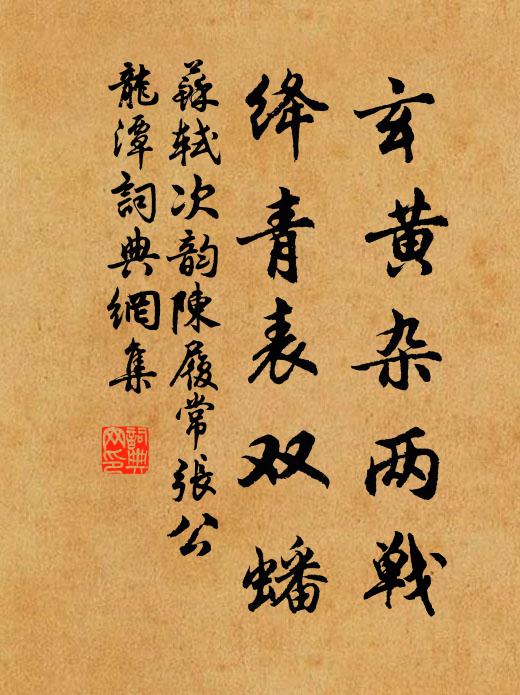 玄黄杂两战
绛青表双蟠
蘇軾次韵陳履常張公
龍潭詞典網集
詞典网印